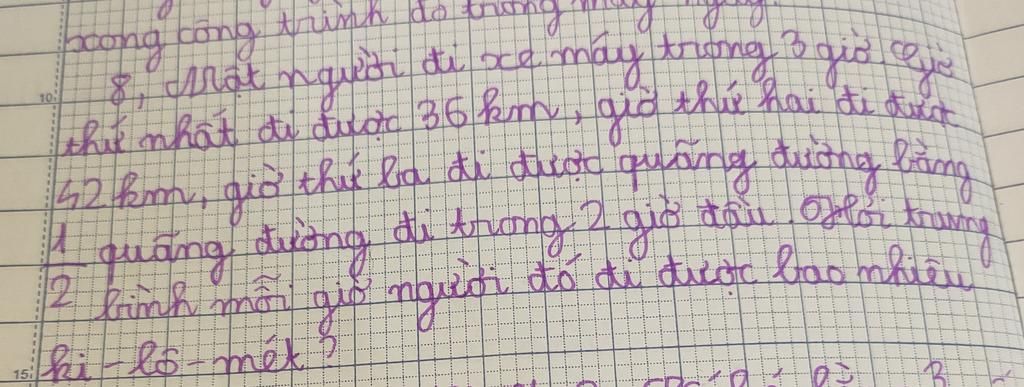 xong công trình đó trong mấy ngày
8, Một người đi xe máy trong 3 giờ. Giờ
thứ nhất đi được 36 km, giờ thứ hai đi được
42 km, giờ thứ ba đi được quãng đường bằng
1/2 quãng đường đi trong 2 giờ đầu. Hỏi trung
bình mỗi giờ người đó đi được bao nhiêu
ki-lô-mét?